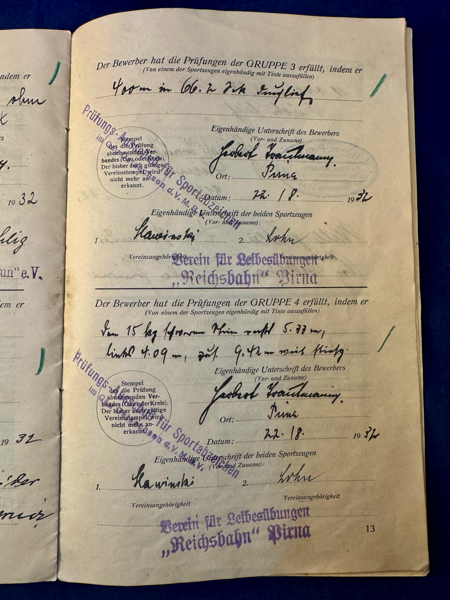 ndem er
ohm
4.
1932
un" e.V.
dem er
1932
Der Bewerber hat die Prüfungen der GRUPPE 3 erfüllt, indem er
(Von einem der Sportzeugen eigenhändig mit Tinte auszufüllen)
400 m in 66.2 Sek
Eigenhändige Unterschrift des Bewerbers
(Vor- und Zuname)
Herbert Trautmann
Ort: Pirna
Datum: 22./8. 1932
Stempel
des die Prüfung
abnehmenden Ver-
bandes (Gau oder Kreis).
Der bisher auch gültige
Vereinsstempel wird
nicht mehr an-
erkannt.
Prüfungs- für Sportabzeichen
im d.V.M.B.V.
Eigenhändige Unterschrift der beiden Sportzeugen
(Vor- und Zuname):
1. Slawinski 2. Lohn
Vereinsangehörigkeit
Verein für Leibesübungen
„Reichsbahn" Pirna
Der Bewerber hat die Prüfungen der GRUPPE 4 erfüllt, indem er
(Von einem der Sportzeugen eigenhändig mit Tinte auszufüllen)
den 15 kg schweren Stein rechts 5.33 m,
links 4.09 m, zus. 9.42 m weit stieß.
Eigenhändige Unterschrift des Bewerbers
(Vor- und Zuname)
Herbert Trautmann
Ort: Pirna
Datum: 22./8. 1932
Stempel
des die Prüfung
abnehmenden Ver-
bandes (Gau oder Kreis).
Der bisher auch gültige
Vereinsstempel wird
nicht mehr an-
erkannt.
Prüfungs- für Sportabzeichen
im d.V.M.B.V.
Eigenhändige Unterschrift der beiden Sportzeugen
(Vor- und Zuname):
1. Slawinski 2. Lohn
Vereinsangehörigkeit Vereinsangehörigkeit
Verein für Leibesübungen
„Reichsbahn" Pirna
13